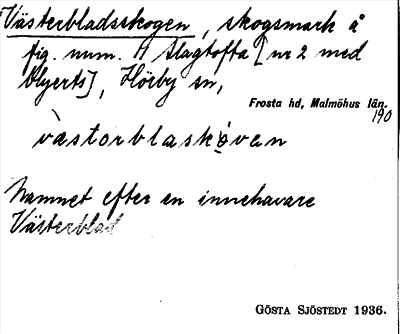 Västerbladsskogen, skogsmark å
fig. num. A Slagtofta [nr 2 med
blyerts], Hörby sn,
Frosta hd, Malmöhus län.
190
vàstorblaskǫven
Namnet efter en innehavare
Västerblad
GÖSTA SJÖSTEDT 1936.